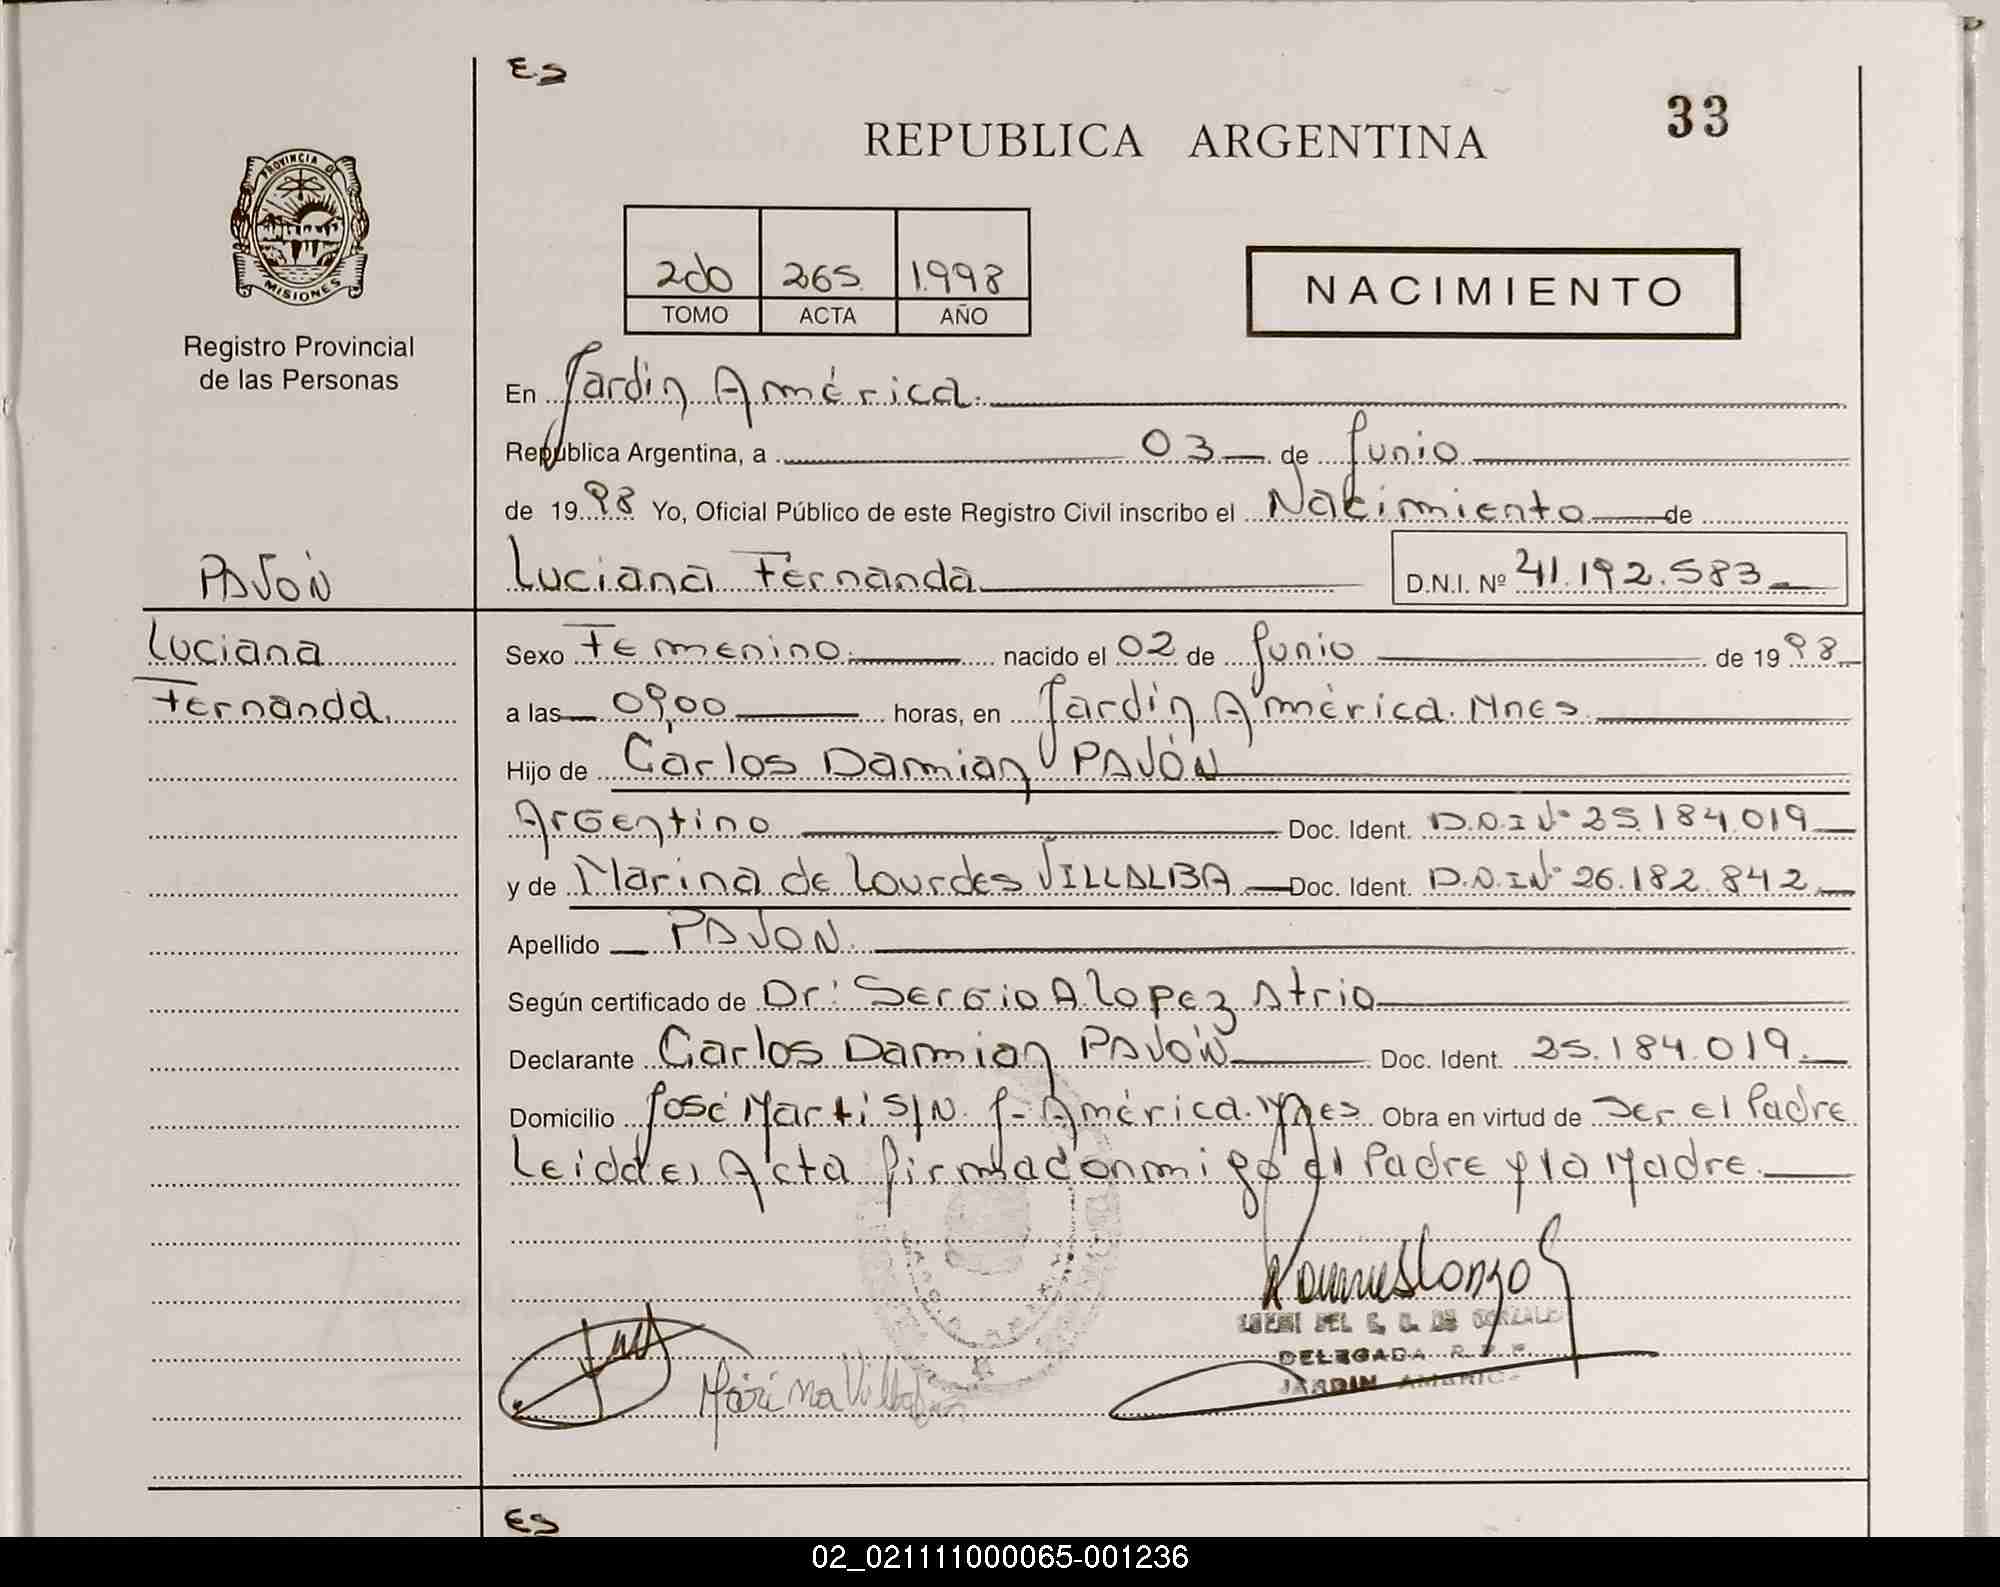 ES
33
REPUBLICA ARGENTINA
PROVINCIA DE
MISIONES
Registro Provincial
de las Personas
2do 265. 1.998
TOMO ACTA AÑO
NACIMIENTO
En Jardin América.
Republica Argentina, a 03 de Junio
de 1998 Yo, Oficial Público de este Registro Civil inscribo el Nacimiento de
Luciana Fernanda D.N.I. Nº 41.192.583
PAVON
Luciana
Fernanda.
Sexo Femenino. nacido el 02 de Junio de 1998
a las 09,00 horas, en Jardin América. Mnes
Hijo de Carlos Damian PAVÓN
Argentino Doc. Ident. D.N.I Nº 25.184.019
y de Marina de Lourdes VILLALBA Doc. Ident. D.N.I Nº 26.182.842
Apellido PAVON.
Según certificado de Dr: Sergio A. Lopez Atrio
Declarante Carlos Damian PAVÓN Doc. Ident. 25.184.019.
Domicilio José Marti S/N. J- América. Mnes Obra en virtud de Ser el Padre
Leida el Acta firma conmigo el Padre y la Madre.
DELEGADA R. P. P.
JARDIN AMERICA
Marina Villalba
ES
02_021111000065-001236